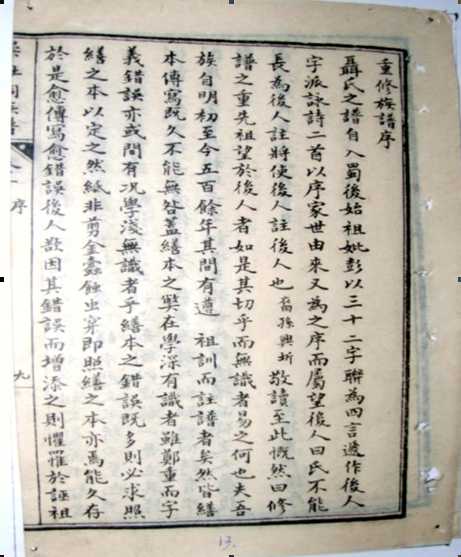 重修族譜序
聶氏之譜自入蜀後始祖妣彭以三十二字聯為四言遂作後人
字派詠詩二首以序家世由來又為之序而屬望後人曰氏不能
長為後人註將使後人註後人也裔孫興圻敬讀至此慨然曰修
譜之重先祖望於後人者如是其切乎而無識者易之何也夫吾
族自明初至今五百餘年其間有遵 祖訓而註譜者矣然皆繕
本傳寫既久不能無咎蓋繕本之獘在學深有識者雖鄭重而字
義錯誤亦或間有况學淺無識者乎繕本之錯誤既多則必求照
繕之本以定之然紙非剪金蠹蝕出穿即照繕之本亦焉能久存
於是愈傳寫愈錯誤後人欺因其錯誤而增添之則懼罹於誣祖
序
九
13.